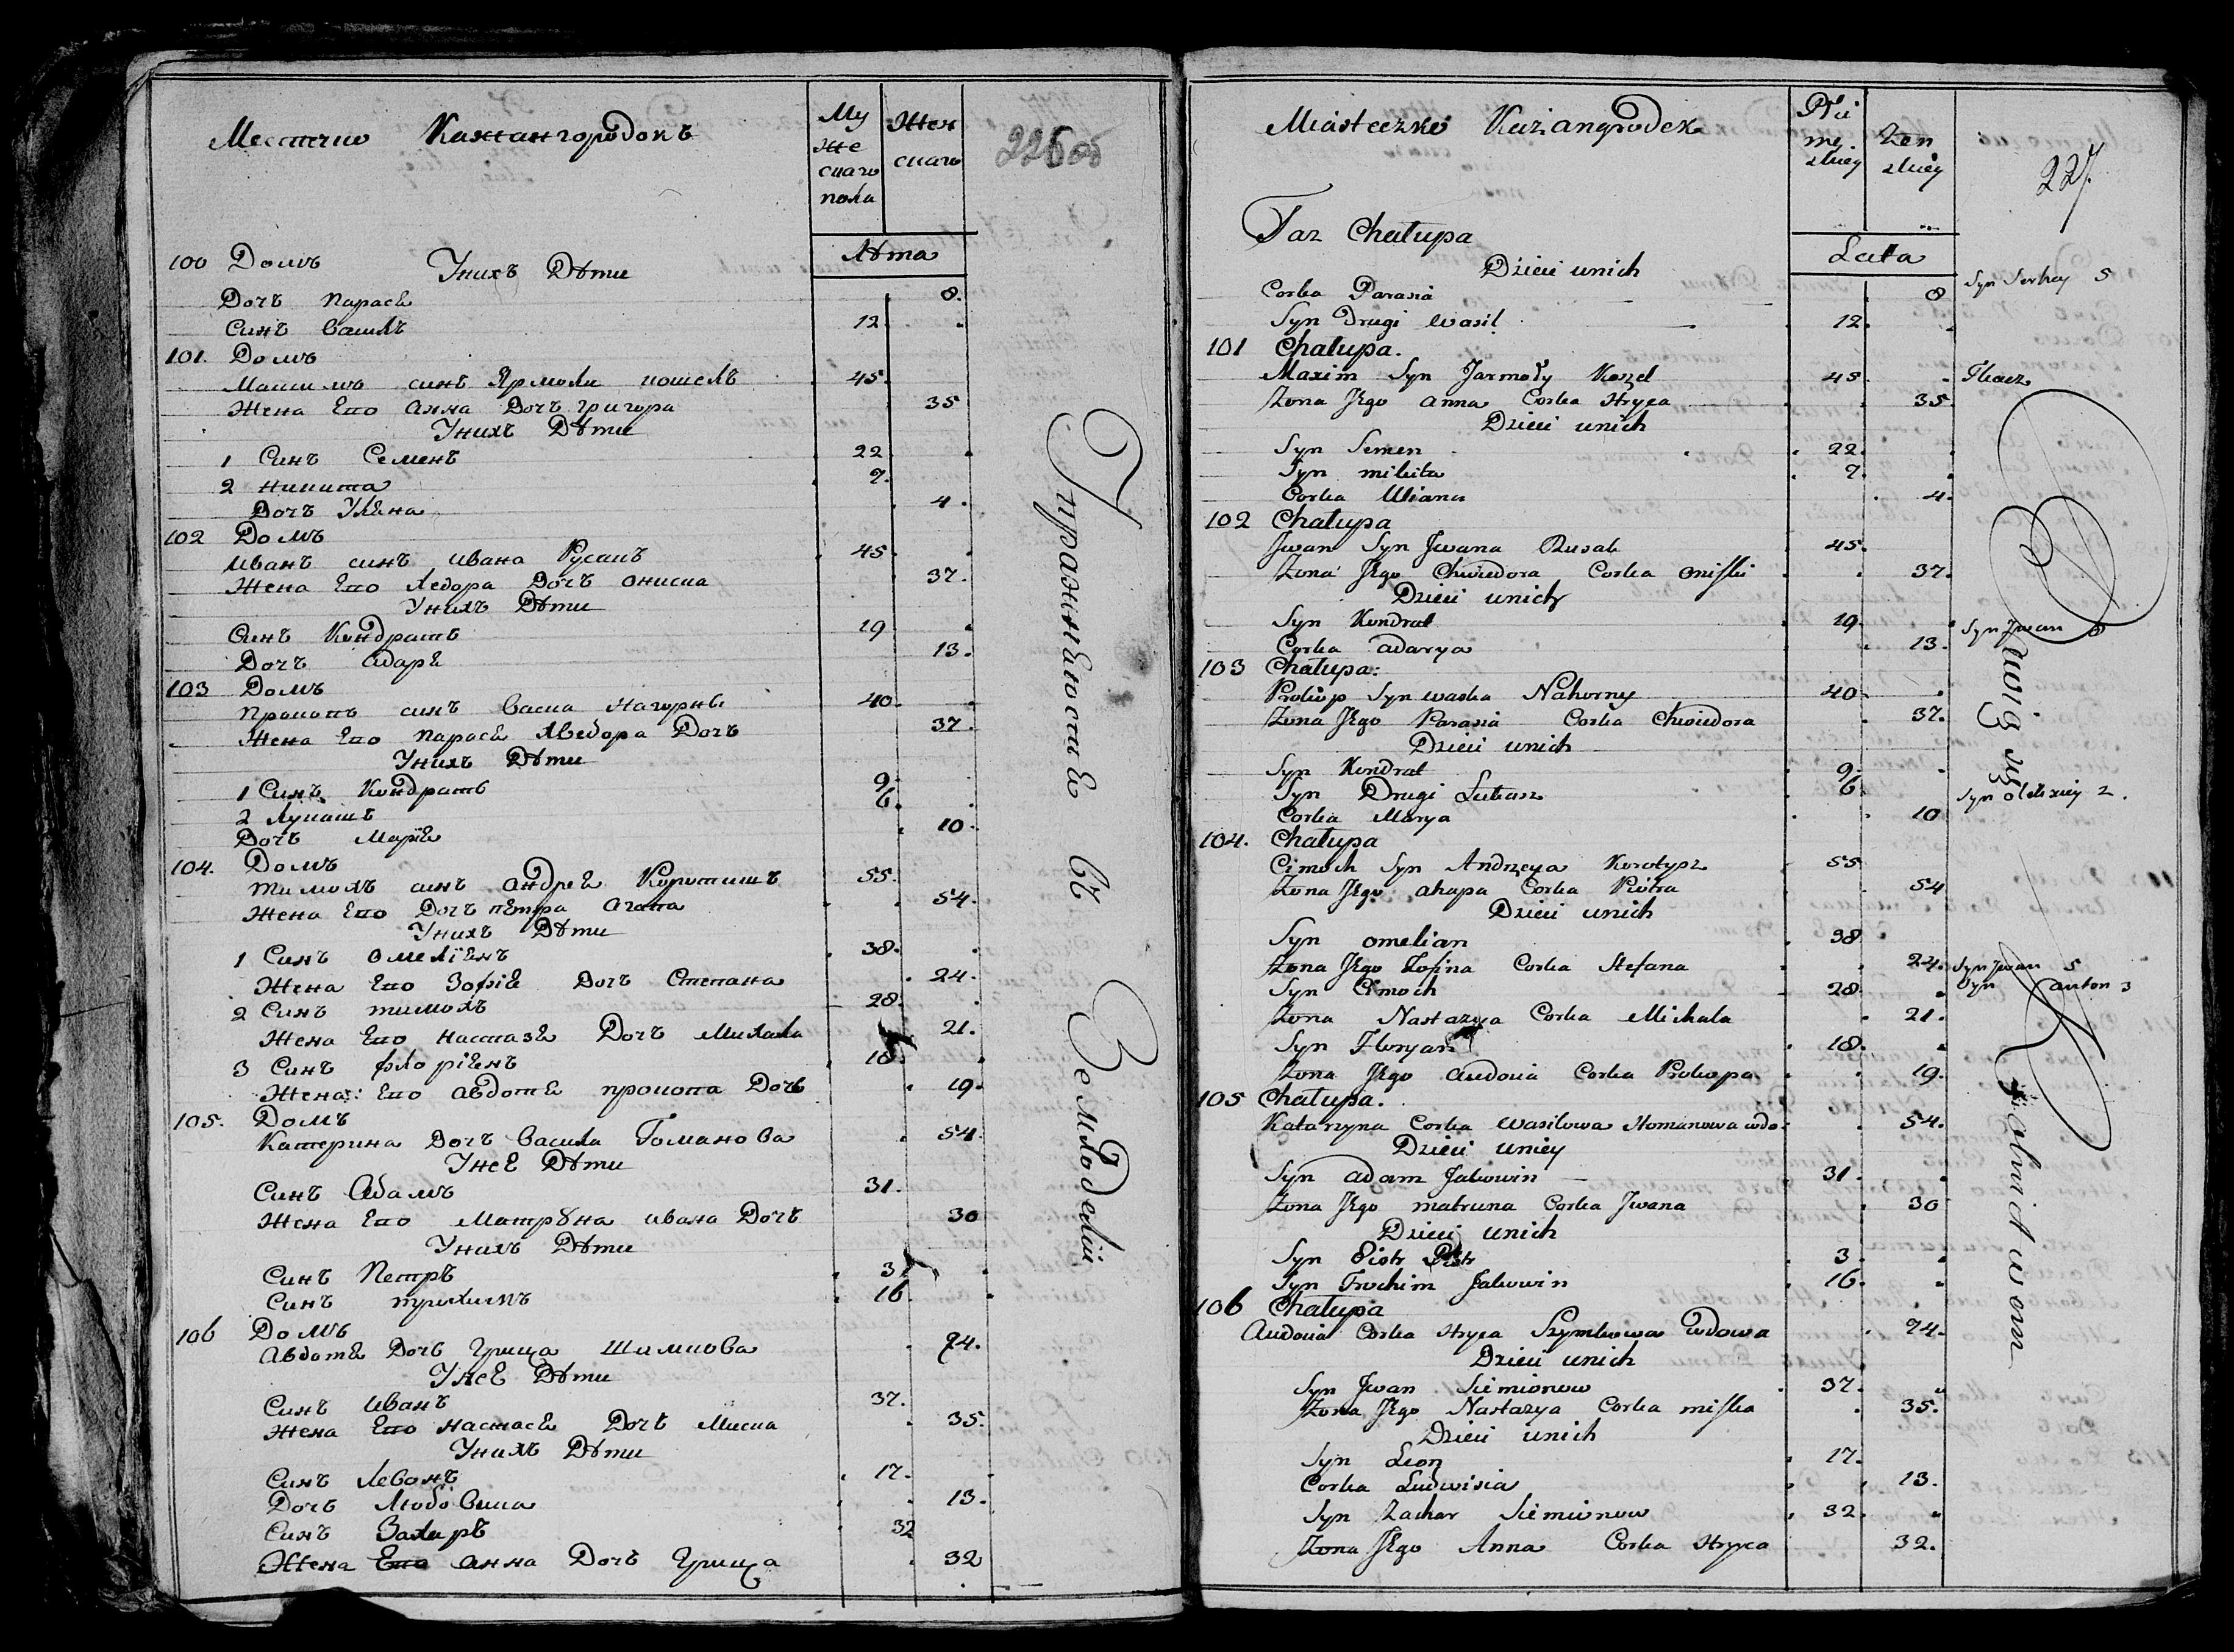 Местечко Кажангородокъ
Му
же
скаго
пола
Жен
скаго
226 об
Лѣта
100 Домъ
Унихъ Дѣти
Дочъ Парася 8.
Синъ Василъ 12.
101. Домъ
Максимъ синъ Ярмоли Кошелъ 45.
Жена Его Анна Дочъ Григора 35
Унихъ Дѣти
1 Синъ Семенъ 22
2 Никита 7.
Дочъ Уляна 4.
102 Домъ
Иванъ синъ Ивана Русакъ 45.
Жена Его Хведора Дочъ Ониска 37.
Унихъ Дѣти
Синъ Кондратъ 19
Дочъ Одаря 13.
103 Домъ
Прокопъ синъ Васка Нагорны 40.
Жена Его Парася Хведора Дочъ 37.
Унихъ Дѣти
1 Синъ Кондратъ 9.
2 Лукашъ 6.
Дочъ Марія 10.
104. Домъ
Тимохъ синъ Андрея 55.
Жена Его Дочъ Петра Агапа 54.
Унихъ Дѣти
1 Синъ Омеліянъ 38.
Жена Его Зофія Дочъ Степана 24.
2 Синъ Тимохъ 28.
Жена Его Настазя Дочъ Михала 21.
3 Синъ Флоріянъ 18.
Жена: Его Авдотя Прокопа Дочъ 19.
105. Домъ
Катерина Дочъ Василя Гоманова 54.
Унеѣ Дѣти
Синъ Адамъ 31.
Жена Его Матруна Ивана Дочъ 30
Унихъ Дѣти
Синъ Петръ 3
Синъ Трихимъ 16.
106 Домъ
Авдотя Дочъ Грица Шимкова 74.
Унеѣ Дѣти
Синъ Иванъ 37.
Жена Его Настася Дочъ Миска 35.
Унихъ Дѣти
Синъ Леванъ 17.
Дочъ Любовиша 13.
Синъ Захаръ 32
Жена Его Анна Дочъ Грица 32
Упражняюстя въ Земледеліи
Miasteczko Kazangrodek
Płci
męz.
skiey
Żen
skiey
227.
Lata
Taz Chałupa
Dzieci unich
Syn Serhey 5
Corka Parasia 8
Syn Drugi Wasil 12.
101 Chałupa.
Maxim Syn Jarmoły Koszel 45. Tkacz
Zona Jego Anna Corka Hryca 35.
Dzieci unich
Syn Semen 22.
Syn Mikita 7.
Corka Uliana 4.
102 Chałupa
Jwan Syn Jwana Rusak 45.
Zona Jego Chwiedora Corka Oniski 37.
Dzieci unich
Syn Kondrat 19. Syn Jwan 8
Corka Adarya 13.
103 Chałupa:
Prokop Syn Waska Nahorny 40.
Zona Jego Parasia Corka Chwiedora 37.
Dzieci unich
Syn Kondrat 9.
Syn Drugi Łukasz 6. Syn Olekxiey 2.
Corka Marya 10
104. Chałupa
Cimoch Syn Andrzeya Korotysz 55
Zona Jego Ahapa Corka Piotra 54
Dzieci unich
Syn Omelian 38
Zona Jego Zofina Corka Stefana 24. Syn Jwan 5
Syn Cimoch 28. Syn Anton 3
Zona Nastazya Corka Michala 21.
Syn Floryan 18.
Zona Jego Audocia Corka Prokopa 19.
105 Chałupa.
Katarzyna Corka Wasilowa Homanowa wdo. 54.
Dzieci uniey
Syn Adam Jakowin 31.
Zona Jego Matruna Corka Jwana 30
Dzieci unich
Syn Piotr Piotr 3.
Syn Trochim Jakowin 16.
106 Chałupa
Audocia Corka Hryca Szymkowa Wdowa 74.
Dzieci unich
Syn Jwan Siemionow 37.
Zona Jego Nastazya Corka Miska 35.
Dzieci unich
Syn Leon 17.
Corka Ludwisia 13.
Syn Zachar Siemionow 32.
Zona Jego Anna Corka Hryca 32.
Bawią się Rolnictwem